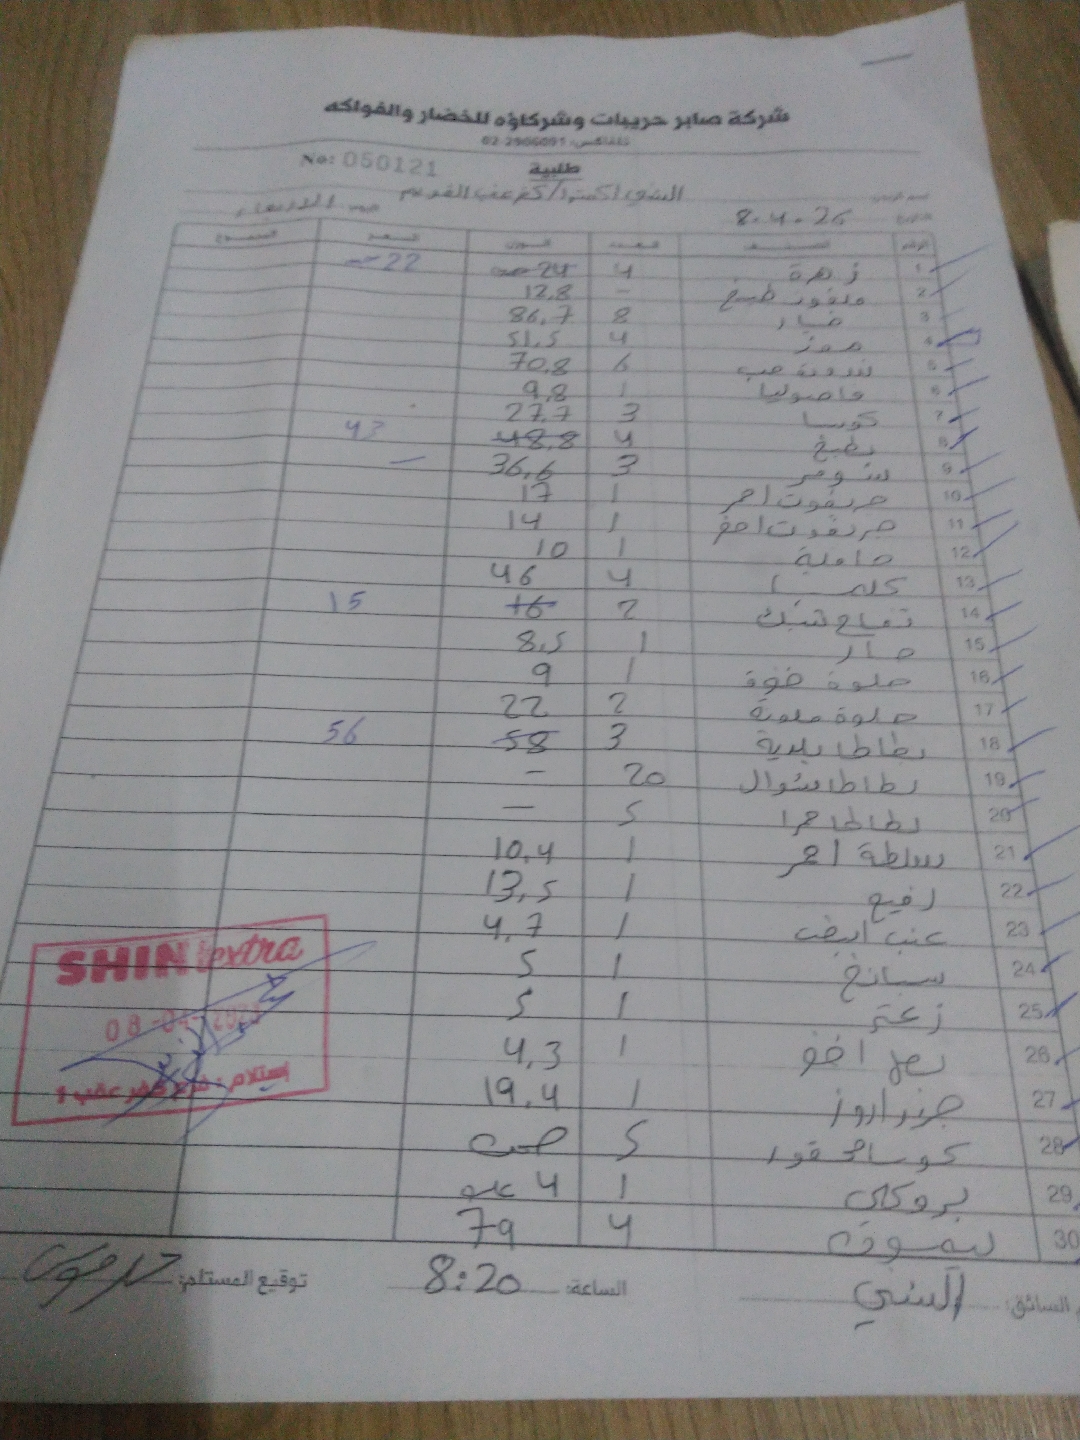 شركة صابر حريبات وشركاؤه للخضار والفواكه
تلفاكس: 02-2966091
No: 050121
طلبية
الشني اكسترا / كفر عقب القديم
التاريخ 8.4.26 الاربعاء
الرقم الصنف العدد الوزن السعر المجموع
1 زهرة 4 24 حبه 22 حبه
2 ملفوف طبخ - 12,8
3 خيار 8 86,7
4 موز 4 51,5
5 بندورة حب 6 70,8
6 فاصوليا 1 9,8
7 كوسا 3 27,7
8 بطيخ 4 48,8 43
9 شومر 3 36,6 -
10 جريفوت احمر 1 17
11 جريفوت اخضر 1 14
12 1 10
13 كلمنتينا 4 46
14 تفاح 2 16 15
15 حار 1 8,5
16 حلوة خضرة 1 9
17 حلوة ملونة 2 22
18 بطاطا بلدية 3 58 56
19 بطاطا شوال 20 -
20 بطاطا حمرا 5 -
21 سلطة احمر 1 10,4
22 رفيع 1 13,5
23 عنب ابيض 1 4,7
24 سبانخ 1 5
25 زعتر 1 5
26 بصل اخضر 1 4,3
27 جزر اروز 1 19,4
28 كوسا محفور 5 صحن
29 بروكلي 1 4
30 ليمون 4 79
SHINI extra
08-04-2026
إستلام: فرع كفر عقب
السائق: الشني الساعة: 8:20 توقيع المستلم: